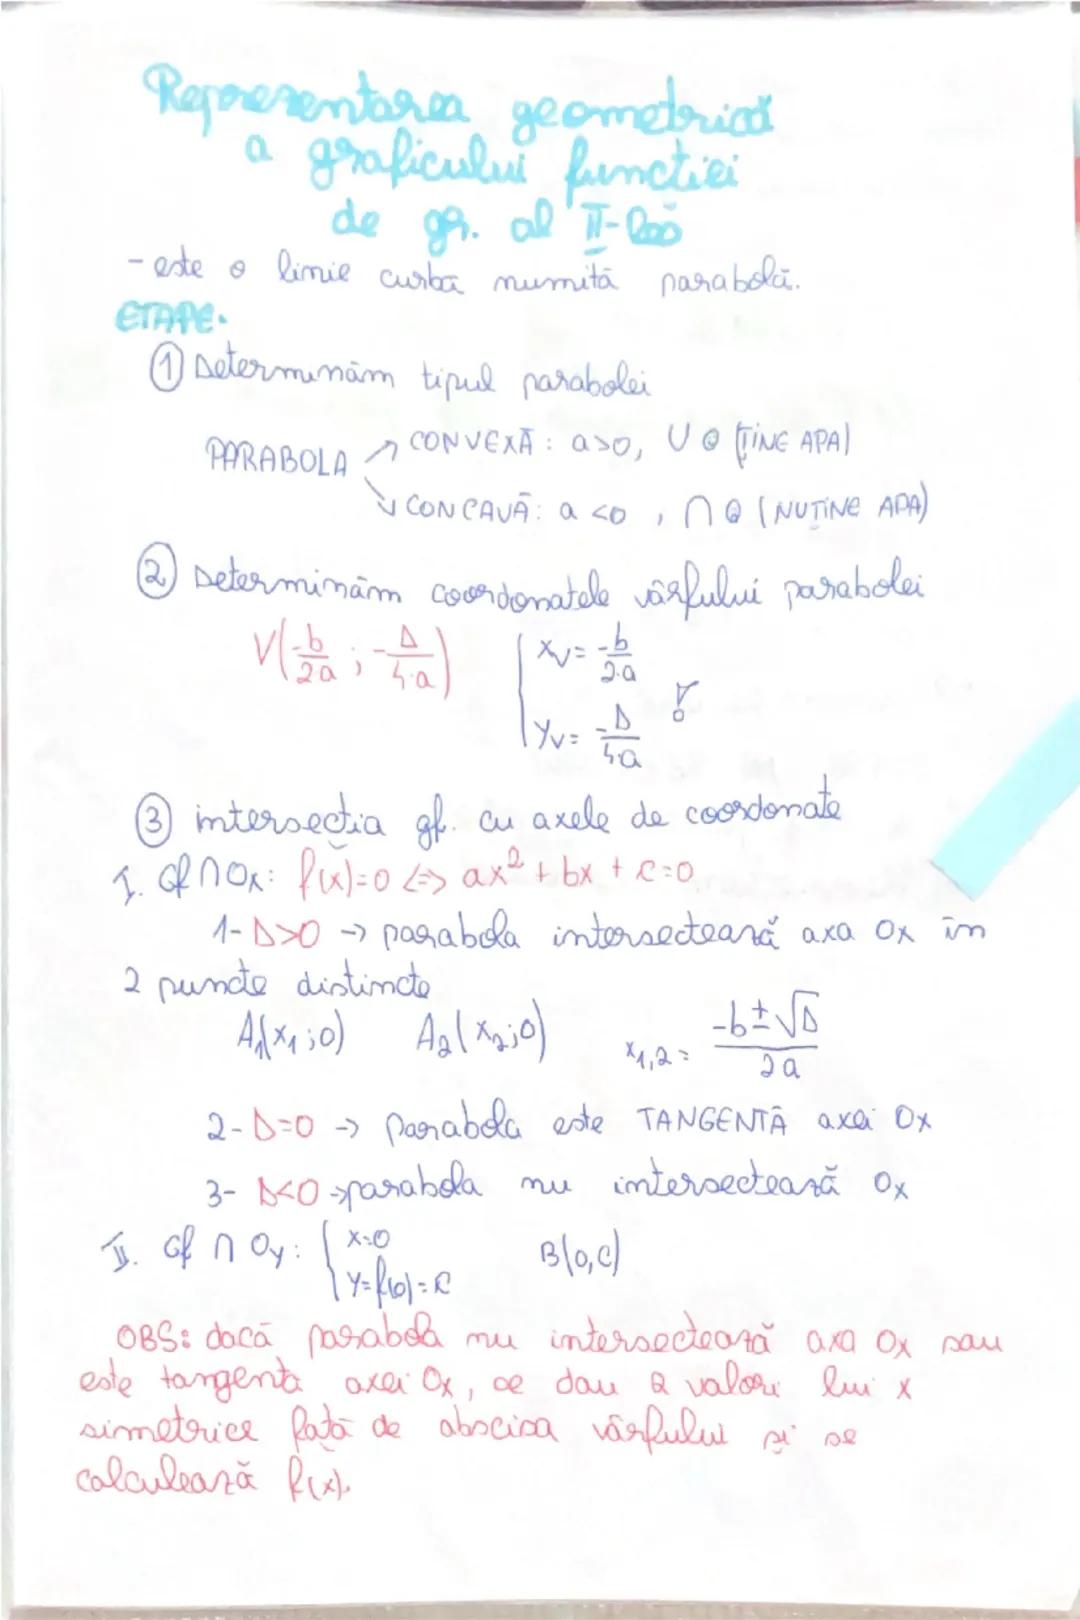 Reprezentarea geometrică
a graficului funcției
de gr. al II-lea
- este o linie curbă numită parabolă.
ETAPE.
① Determinăm tipul parabolei
PARABOLA ↗ CONVEXĂ: a>0, U☺ (ȚINE APA)
↘ CONCAVĂ: a<0, ∩☹ (NU ȚINE APA)
② Determinăm coordonatele vârfului parabolei
V(-b/2a ; -Δ/4·a) { xᵥ = -b/2·a
yᵥ = -Δ/4a !
③ intersecția gf. cu axele de coordonate
I. Gf ∩ Ox: f(x)=0 <=> ax² + bx + c=0
1- Δ>0 -> parabola intersectează axa Ox în
2 puncte distincte
A₁(x₁;0) A₂(x₂;0) x₁,₂ = (-b±√Δ)/2a
2- Δ=0 -> parabola este TANGENTĂ axei Ox
3- Δ<0 -> parabola nu intersectează Ox
II. Gf ∩ Oy: { x=0 B(0,c)
y=f(0)=c
OBS: dacă parabola nu intersectează axa Ox sau
este tangentă axei Ox, se dau 2 valori lui x
simetrice față de abscisa vârfului și se
calculează f(x).